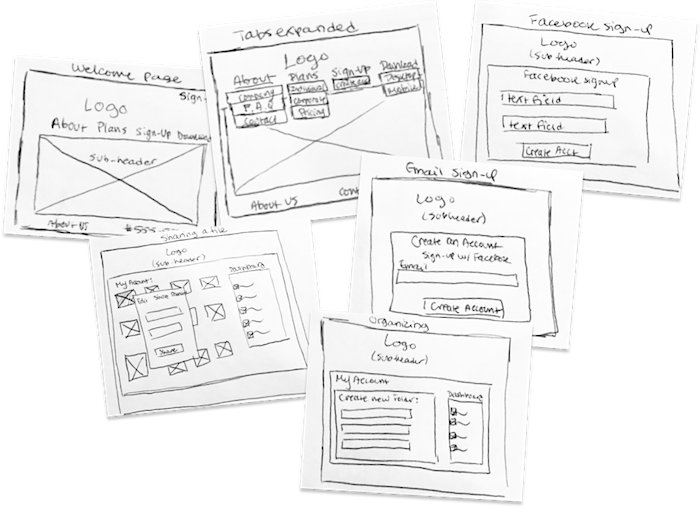 Welcome page
Sign-
Logo
About Plans Sign-Up Download
Sub-header
About US
Tabs expanded
Logo
About Plans Sign-Up Download
Company
F.A.Q
Contact
Individual
Corporate
Pricing
Desktop
Mobile
About US
Facebook Sign-up
Logo
(Sub header)
Facebook signup
Text Field
Text Field
Create Acct
Email Sign-up
Logo
(Subheader)
Create An Account
Sign-up w/ Facebook
Email
Create Account
Sharing a file
Logo
(Sub header)
My Account:
Dashboard
Edit Share
Share
Organizing
Logo
(Subheader)
My Account
Create new Folder:
Dashboard